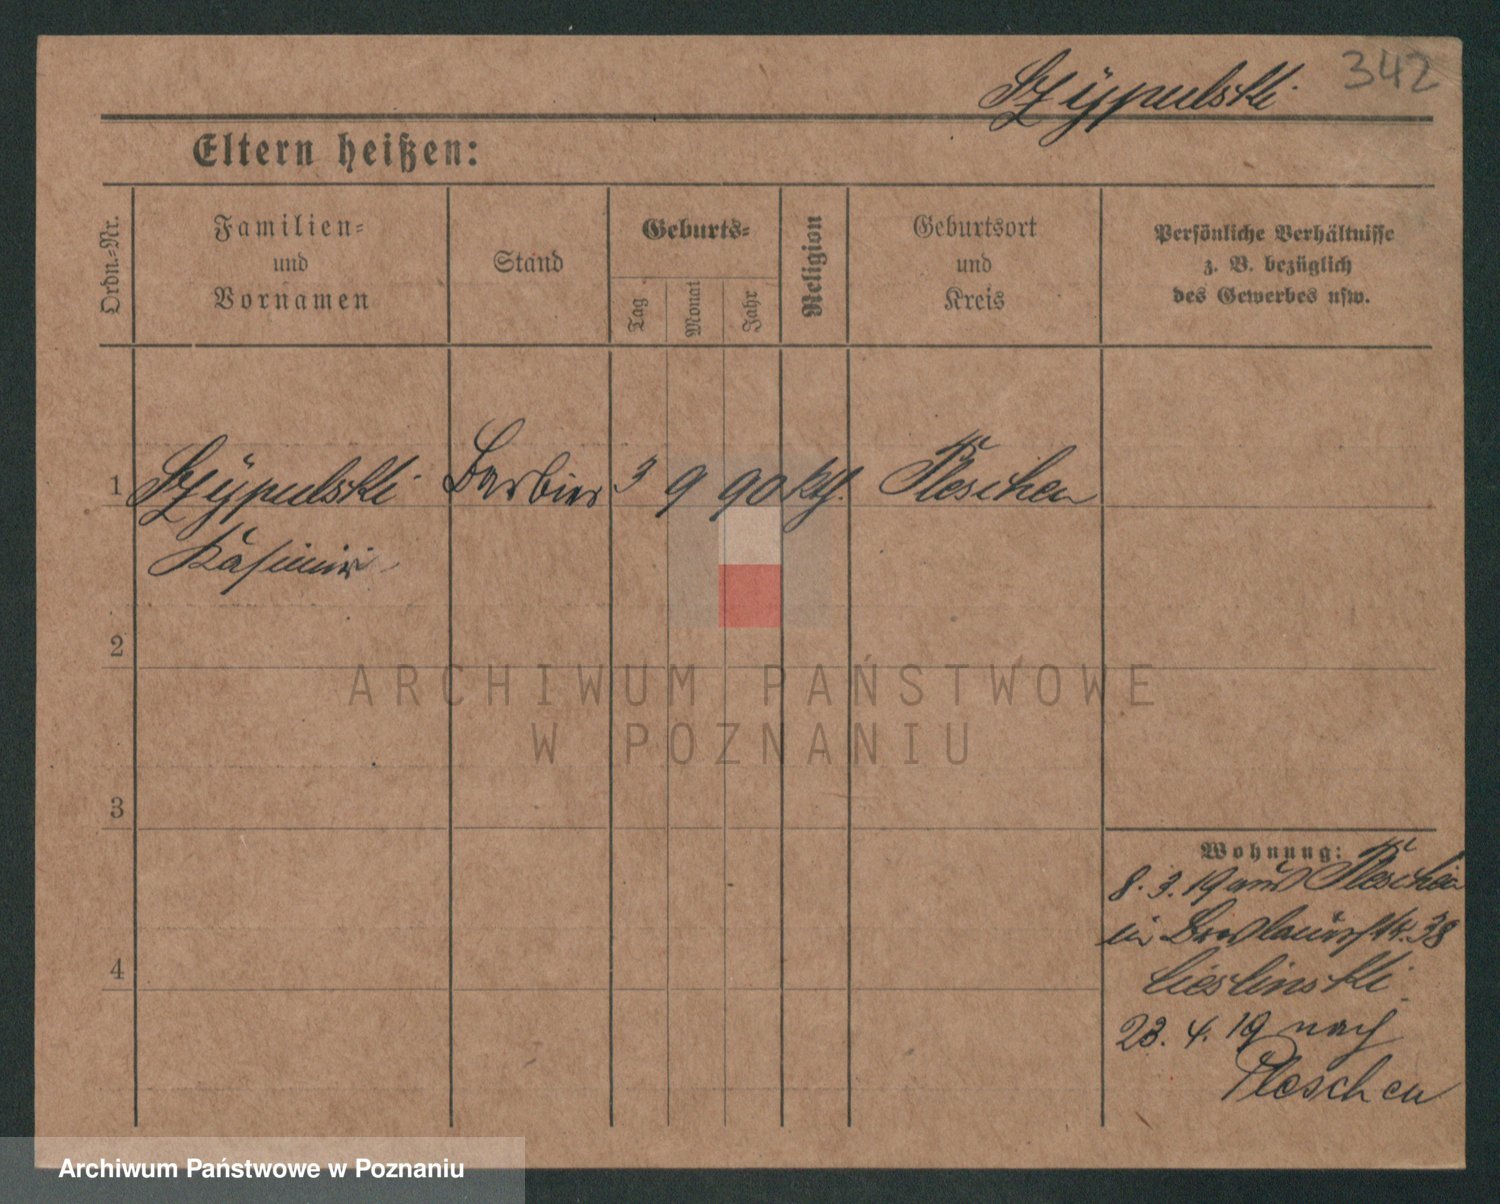 Szypulski 342
Eltern heißen:
Ordn.-Nr.
Familien-
und
Vornamen
Stand
Geburts-
Tag
Monat
Jahr
Religion
Geburtsort
und
Kreis
Persönliche Verhältnisse
z. B. bezüglich
des Gewerbes usw.
1 Szypulski Barbier 3 9 90 kth. Pleschen
Kasimir
2
3
4
Wohnung:
8. 3. 19 aus Pleschen
in 38
Cieslinski
23. 4. 19 nach
Pleschen
ARCHIWUM PAŃSTWOWE
W POZNANIU
Archiwum Państwowe w Poznaniu